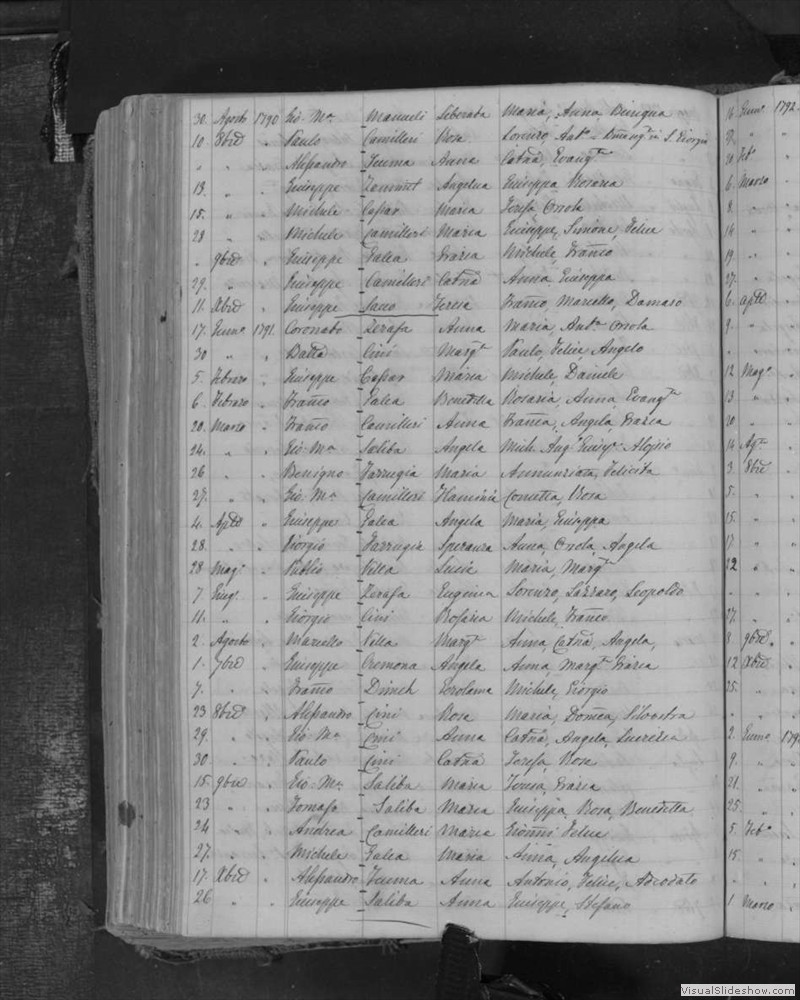 30. Agosto 1790 Gio. Ma. Manueli Liberata Maria, Anna, Benigna
10 8bre " Paulo Camilleri Rosa Lorenzo, Anto
" " " Alessandro Jumma Anna Catna, Evangta
13. " " Giuseppe Zammit Angelica Giuseppa, Rosaria
15. " " Michele Caspar Maria Teresa, Orsola
28 " " Michele Camilleri Maria Giuseppe, Simone, Felice
" 9bre " Giuseppe Galea Grazia Michele, Franco
29. " " Giuseppe Camilleri Catna Anna, Giuseppa
11. Xbre " Giuseppe Sacco Teresa Franco, Marcello, Damaso
17. Genno 1791. Coronato Zerafa Anna Maria, Anta Orsola
30 " " Batta Cini Margta Paulo, Felice, Angelo
5. Febraro " Giuseppe Caspar Maria Michele, Daniele
6. Febraro " Franco Galea Benedetta Rosaria, Anna, Evangta
20. Marzo " Franco Camilleri Anna Franca, Angela, Grazia
24. " " Gio. Ma. Saliba Angela Mich. Ang. Giuspe Aloisio
26 " " Benigno Farrugia Maria Annunziata, Felicita
27. " " Gio. Ma. Camilleri Flaminia Cometta, Rosa
4. Aple " Giuseppe Galea Angela Maria, Giuseppa
28. " " Giorgio Farrugia Speranza Anna, Orsola, Angela
28 Mago " Publio Villa Lucia Maria, Margta
7 Giugo " Giuseppe Zerafa Eugenia Lorenzo, Lazzaro, Leopoldo
11. " " Giorgio Cini Rosaria Michele, Franco
2. Agosto " Marcello Villa Margta Anna, Catna, Angela,
1. 7bre " Giuseppe Cremona Angela Anna, Margta Grazia
7. " " Franco Dimech Gerolama Michele, Giorgio
23 8bre " Alessandro Cini Rosa Maria, Domca, Silvestra
29. " " Gio. Ma. Cini Anna Catna, Angela, Lucrezia
30. " " Paulo Cini Catna Teresa, Rosa
15. 9bre " Gio. Ma. Saliba Maria Teresa, Grazia
23 " " Tomaso Saliba Maria Giuseppa, Rosa, Benedetta
24 " " Andrea Camilleri Maria Giovni Felice
27. " " Michele Galea Maria Anna, Angelica
17. Xbre " Alessandro Jumma Anna Antonio, Felice, Adeodato
26 " Giuseppe Saliba Anna Giuseppe, Stefano
16 Genno 1792
" "
Feb.
6. Marzo "
8. " "
16 " "
19. " "
27. " "
6. Aple "
9. " "
" "
12 Mago "
13. " "
20 " "
14 Ago "
3. 8bre "
5. " "
15. " "
17. " "
22 " "
" "
27. " "
8 9bre "
12 Xbre "
25. " "
" "
2. Genno 179
9. " "
21. " "
25. " "
5. Feb. "
15. " "
" "
1. Marzo "
VisualSlideshow.com